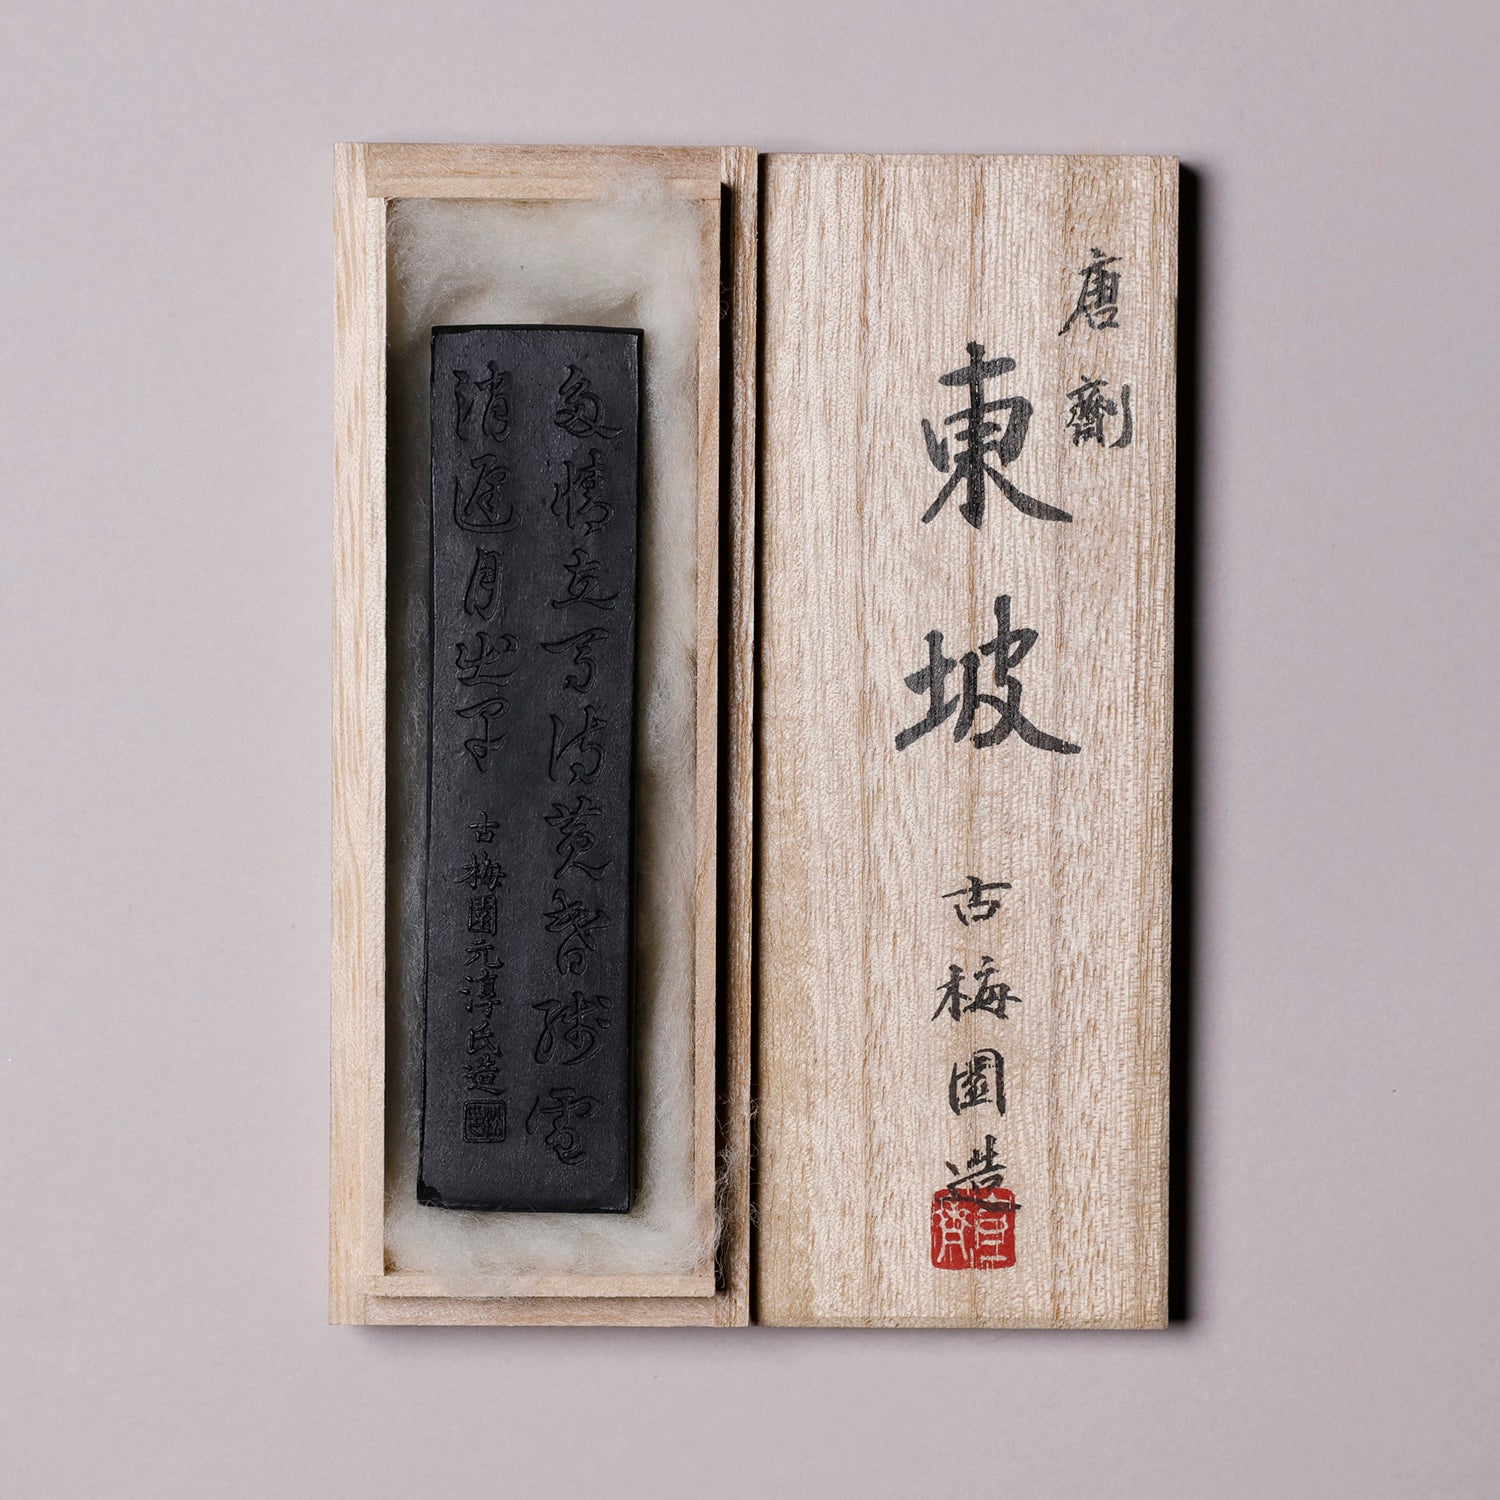 唐劑
東坡
古梅園造
多情立馬待黄昏殘雪
消遲月出早
古梅園元淳氏造